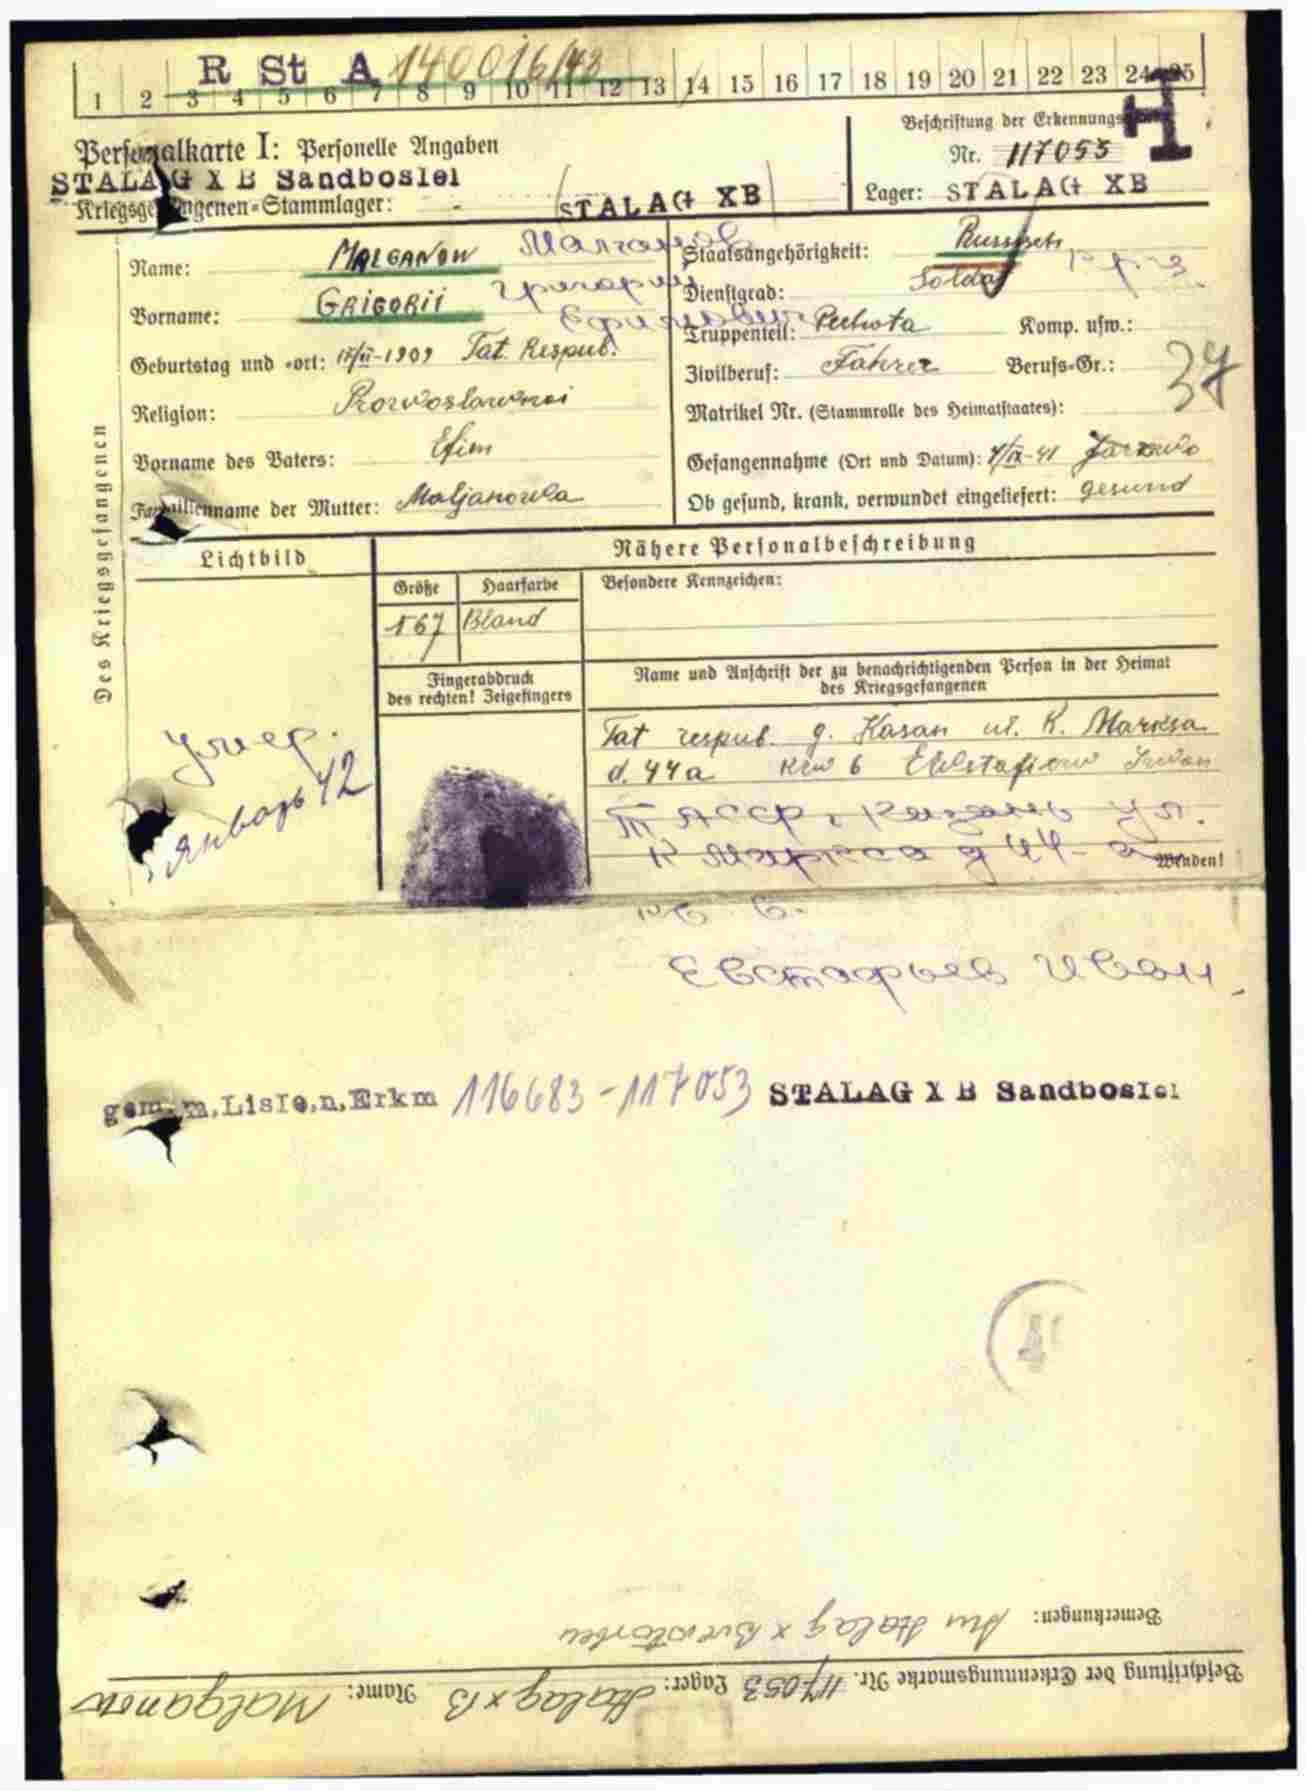 R St A 140016/43
1 2 3 4 5 6 7 8 9 10 11 12 13 14 15 16 17 18 19 20 21 22 23 24 25
H
Personalkarte I: Personelle Angaben
STALAG X B Sandbostel
Kriegsgefangenen-Stammlager: STALAG XB
Beschriftung der Erkennungsmarke
Nr. 117053
Lager: STALAG XB
Des Kriegsgefangenen
Name: MALGANOW Малганов
Vorname: GRIGORII Григорий
Ефимович
Geburtstag und -ort: -1909 Tat. Respub.
Religion: Prawoslawnoi
Vorname des Vaters: Efim
Familienname der Mutter: Maljanowa
Staatsangehörigkeit: Russisch
Dienstgrad: Soldat
Truppenteil: Pechota Komp. usw.:
Zivilberuf: Fahrer Berufs-Gr.: 37
Matrikel Nr. (Stammrolle des Heimatstaates):
Gefangennahme (Ort und Datum): 4/IX-41
Ob gesund, krank, verwundet eingeliefert: gesund
Lichtbild
Nähere Personalbeschreibung
Größe Haarfarbe Besondere Kennzeichen:
167 Bland
Fingerabdruck
des rechten! Zeigefingers
Name und Anschrift der zu benachrichtigenden Person in der Heimat
des Kriegsgefangenen
Tat respub. g. Kasan ul. K. Marksa
d. 44a kw 6 Ewstafiew Iwan
ТАССР г. Казань ул.
К Маркса д 44-а
Wenden!
кв 6.
Евстафьев Иван.
умер.
январь 42
gem. m. Liste, n. Erkm 116683-117053 STALAG X B Sandbostel
4
Bemerkungen: Im Stalag X B verstorben
Beschriftung der Erkennungsmarke Nr. 117053 Lager: Stalag XB Name: Malganow